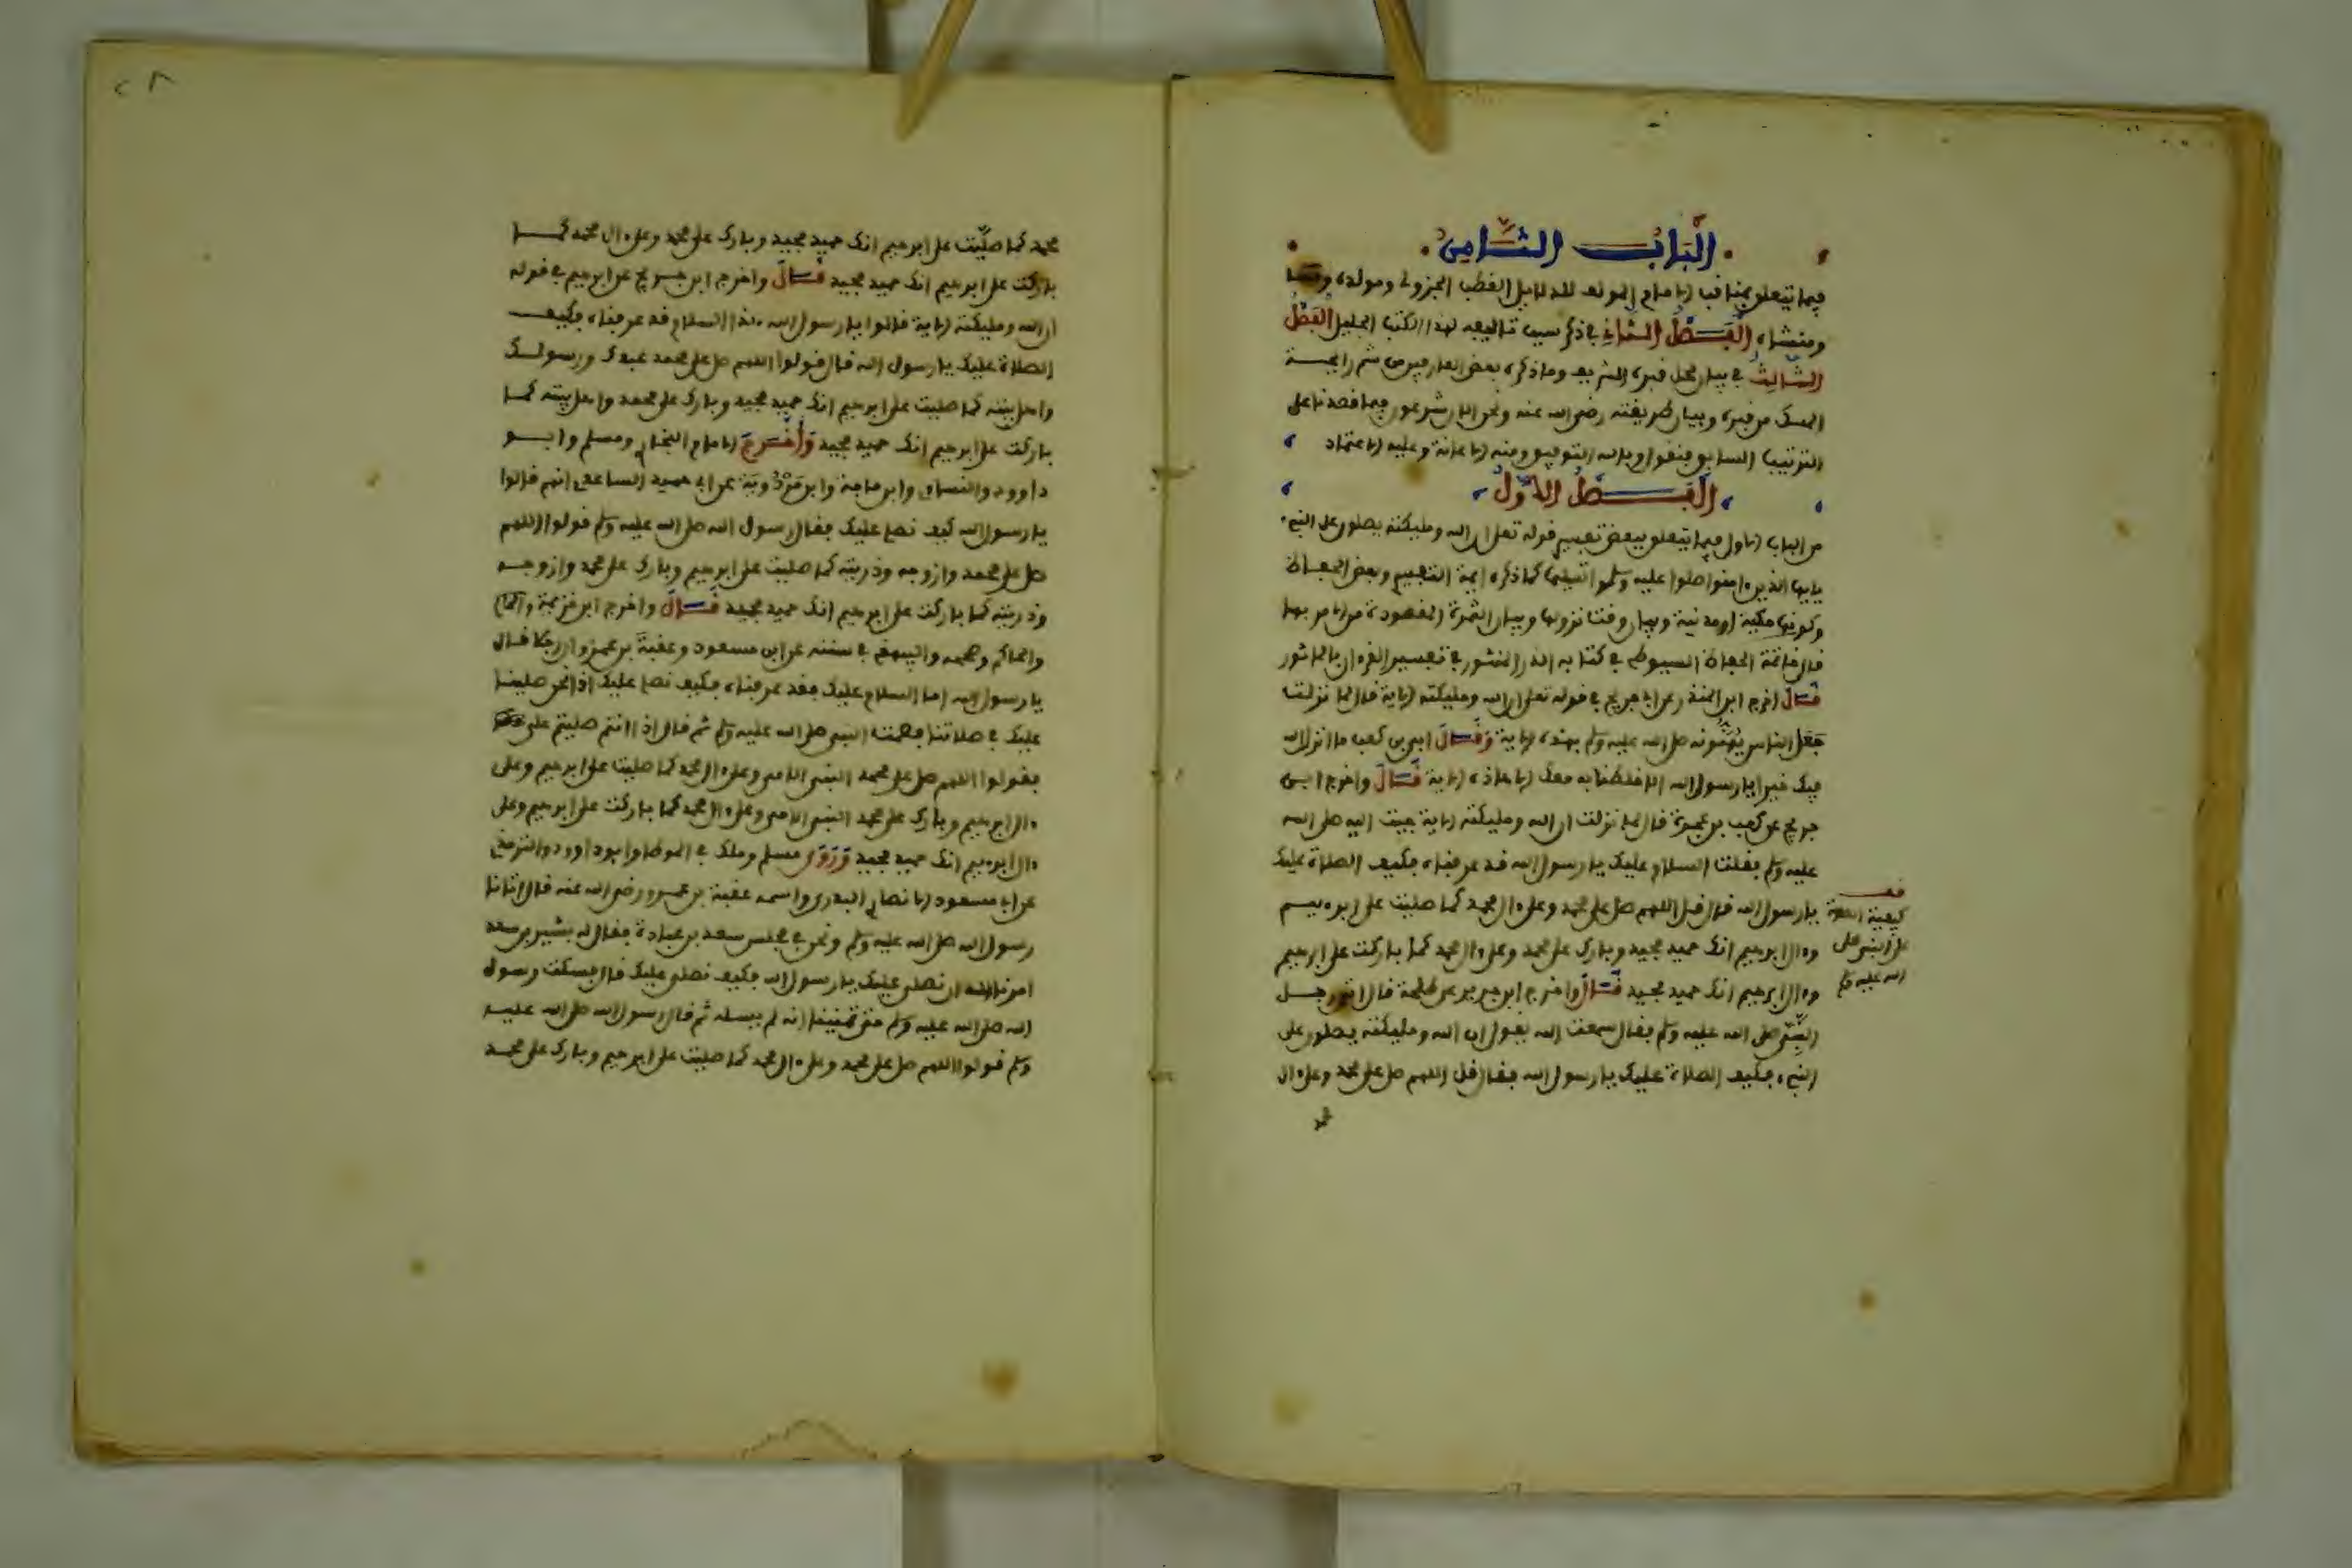 الباب الثامن
فيما يتعلق بمناقب الامام المولف للدلايل القطب الجزولى ومولده
ومنشاه الفصل الثانى في ذكر سبب تاليفه لهذا الكتب الجليل الفصل
الثالث في بيان محل قبره الشريف وما ذكره بعض العارفين من شم رايحة
المسك من قبره وبيان طريقته رضى الله عنه ونحن الان شرعون فيما قصدنا على
الترتيب السابق فنقول وبالله التوفيق ومنه الاعانة وعليه الاعتماد
الفصل الاول
من الباب الاول فيما يتعلق ببعض تفسير قوله تعلى ان الله ومليكته يصلون على النبى
يايها الذين ءامنوا صلوا عليه وسلموا تسليما كما ذكره ايمة التفسير وبعض الحفاظ
وكونها مكية او مدنية وبيان وقت نزولها وبيان الثمرة المقصودة من الامر بها
قال خاتمة الحفاظ السيوطى في كتابه الدر المنثور في تفسير القرءان بالماثور
قال اخرج ابن المنذر عن ابن جريج في قوله تعلى ان الله ومليكته الاية قال لما نزلت
جعل الناس يهنونه صلى الله عليه وسلم بهذه الاية وقال ابى بن كعب ما انزل الله
فيك خيرا يا رسول الله الا خلطنا به معك الا هاذه الاية قال واخرج ابن
جريج عن كعب بن عجرة قال لما نزلت ان الله ومليكته الاية جيت اليه صلى الله
عليه وسلم فقلت السلام عليك يا رسول الله قد عرفناه فكيف الصلاة عليك
يا رسول الله قال قل اللهم صل على محمد وعلى ءال محمد كما صليت على ابرهيم
وءال ابرهيم انك حميد مجيد وبارك على محمد وعلى ءال محمد كما باركت على ابرهيم
وءال ابرهيم انك حميد مجيد قال واخرج ابن جرير عن طلحة قال اتى رجل
النبى صلى الله عليه وسلم فقال سمعت الله يقول ان الله ومليكته يصلون على
النبىء فكيف الصلاة عليك يا رسول الله فقال قل اللهم صل على محمد وعلى ءال
محمد
قف
كيفية الصلاة
على النبى صلى
الله عليه وسلم
٢٨
محمد كما صليت على ابرهيم انك حميد مجيد وبارك على محمد وعلى ءال محمد كما
باركت على ابرهيم انك حميد مجيد قال واخرج ابن جريج عن ابرهيم في قوله
ان الله ومليكته الاية قالوا يا رسول الله هذا السلام قد عرفناه فكيف
الصلاة عليك يا رسول الله قال قولوا اللهم صل على محمد عبدك ورسولك
واهل بيته كما صليت على ابرهيم انك حميد مجيد وبارك على محمد واهل بيته كما
باركت على ابرهيم انك حميد مجيد واخرج الامام البخارى ومسلم وابو
داوود والنساى وابن ماجة وابن مردوية عن ابى حميد الساعدى انهم قالوا
يا رسول الله كيف نصل عليك فقال رسول الله صلى الله عليه وسلم قولوا اللهم
صل على محمد وازوجه وذريته كما صليت على ابرهيم وبارك على محمد وازوجه
وذريته كما باركت على ابرهيم انك حميد مجيد قال واخرج ابن خزيمة
والحاكم وصححه والبيهقى في سننه عن ابن مسعود وعقبة بن عمرو ان رجلا قال
يا رسول الله اما السلام عليك فقد عرفناه فكيف نصل عليك اذا نحن صلينا
عليك في صلاتنا فصمت النبى صلى الله عليه وسلم ثم قال اذا انتم صليتم على
فقولوا اللهم صل على محمد النبى الامى وعلى ءال محمد كما صليت على ابرهيم وعلى
ءال ابرهيم وبارك على محمد النبى الامى وعلى ءال محمد كما باركت على ابرهيم وعلى
ءال ابرهيم انك حميد مجيد وروى مسلم وملك في الموطا وابو داوود والترمذى
عن ابى مسعود الانصارى البدرى واسمه عقبة بن عمرو رضى الله عنه قال اتانا
رسول الله صلى الله عليه وسلم ونحن في مجلس سعد بن عبادة فقال له بشير بن سعد
امرنا الله ان نصلى عليك يا رسول الله فكيف نصلى عليك قال فسكت رسول
الله صلى الله عليه وسلم حتى تمنينا انه لم يسله ثم قال رسول الله صلى الله عليه
وسلم قولوا اللهم صل على محمد وعلى ءال محمد كما صليت على ابرهيم وبارك على محمد